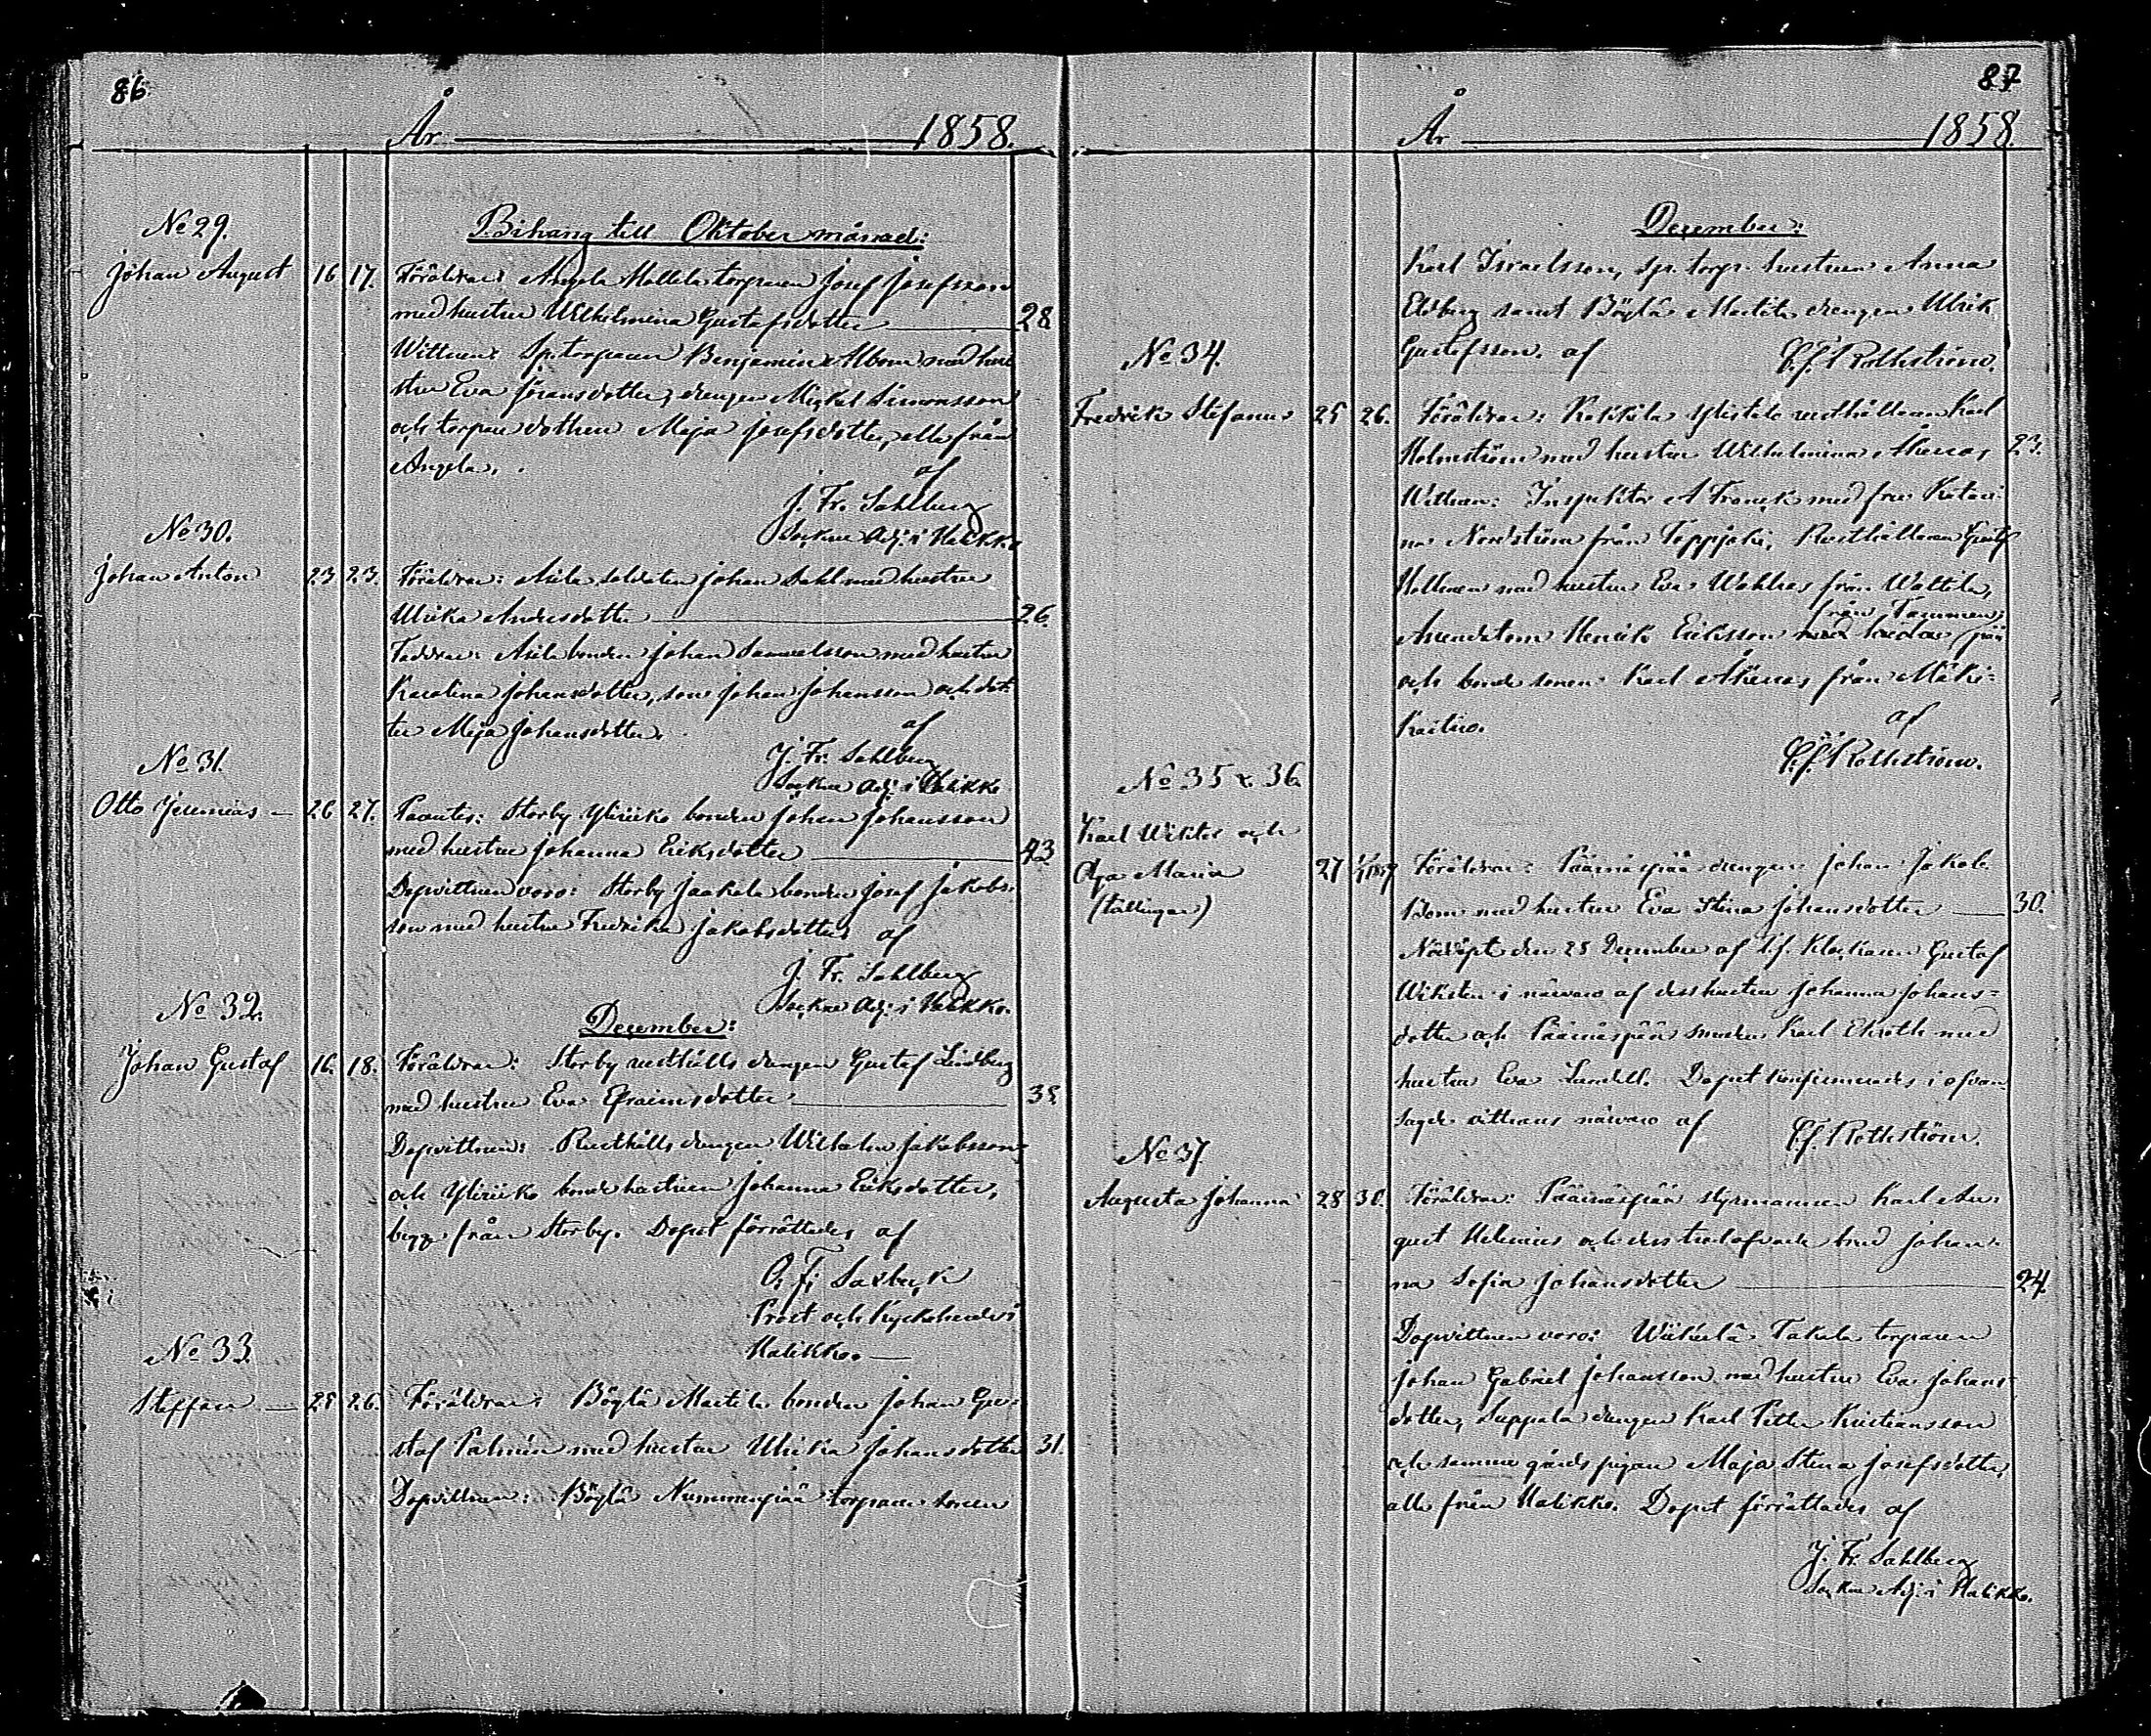 86
År 1858.
Bihang till Oktober månad:
No 29.
Johan August 16 17. Föräldrar: Angela Mollela torparen Josef Josefsson
med hustru Wilhelmina Gustafsdotter 28
Wittnen: Sp. torparen Benjamin Albom med hu
stru Eva Göransdotter, drengen Mickel Simonsson
och torpare dottren Maja Josefsdotter, alla från
Angela.
af
J. Fr. Sahlberg
Sockne Adj. i Halikko
No 30.
Johan Anton 23 23. Föräldrar: Asila soldaten Johan Dahl med hustru
Ulrika Andersdotter 26.
Faddrar: Asila bonden Johan Samuelsson med hustru
Karolina Johansdotter, son Johan Johansson och dot-
ter Maja Johansdotter.
af
J. Fr. Sahlberg
Sockne Adj. i Halikko
No 31.
Otto Jeremias – 26 27. Parentes: Storby Yliriiko bonden Johan Johansson
med hustru Johanna Eriksdotter 43
Dopvittnen voro: Storby Jaakola bonden Josef Jakobs-
son med hustru Fredrika Jakobsdotter af
J. Fr. Sahlberg
Sockne Adj. i Halikko.
December:
No 32.
Johan Gustaf 16. 18. Föräldrar: Storby rusthålls drengen Gustaf Lindberg
med hustru Eva Efraimsdotter 35
Dopvittnen: Rusthålls drengen Wilhelm Jakobsson
och Yliriiko bonde hustrun Johanna Eriksdotter,
begge från Storby. Dopet förrättades af
O. F. Saxbeck
Prost och Kyrkoherde i
Halikko. —
No 33.
Steffan — 25 26. Föräldrar: Böylä Martila bonden Johan Gu-
staf Palmén med hustru Ulrika Johansdotter 31.
Dopvittnen: Böylä Nummenpää torpare sonen
87
År 1858.
December:
Karl Israelsson, sp. torp. hustrun Anna
Ekberg samt Böylä Martila drengen Ulrik
Gustafsson. af
Rothström.
No 34.
Fredrik Stefanus 25 26. Föräldrar: Kaikkila Ylistalo rusthållaren Karl
Holmström med hustru Wilhelmina Åkerros 23.
Wittnen: Inspektor A Franck med fru Katari-
na Nordström från Toppjoki, Rusthållaren Gustaf
Hellman med hustru Eva Wahlros från Wattila,
från Tamminen,
Arendatorn Henrik Eriksson
och bonde sonen Karl Åkerros från Mäki-
af
Rothström.
No 35 & 36.
Karl Wiktor och
Aga Maria 27 1/1 1859 Föräldrar: Päärnäspää drengen Johan Jakob
med hustru Eva Stina Johansdotter 30.
(tvillingar)
Nöddöpt den 28 December af tf. Klockaren Gustaf
Wiksten i närvaro af dess hustru Johanna Johans-
dotter och Päärnäspää smeden Karl Ekroth med
hustru Eva Lundell. Dopet konfirmerades i ofvan
sagde vittnens närvaro af Rothström.
No 37.
Augusta Johanna 28 30. Föräldrar: Päärnäspää styrmannen Karl Au-
gust Helenius och dess trolofvade brud Johan-
na Sofia Johansdotter 24.
Dopvittnen voro: Wiikkelä Takala torparen
Johan Gabriel Johansson med hustru Eva Johans-
dotter, Suppala drengen Karl Petter Kristiansson
och samma gårds pigan Maja Stina Josefsdotter,
alla från Halikko. Dopet förrättades af
J. Fr. Sahlberg
Sockne Adj. i Halikko.